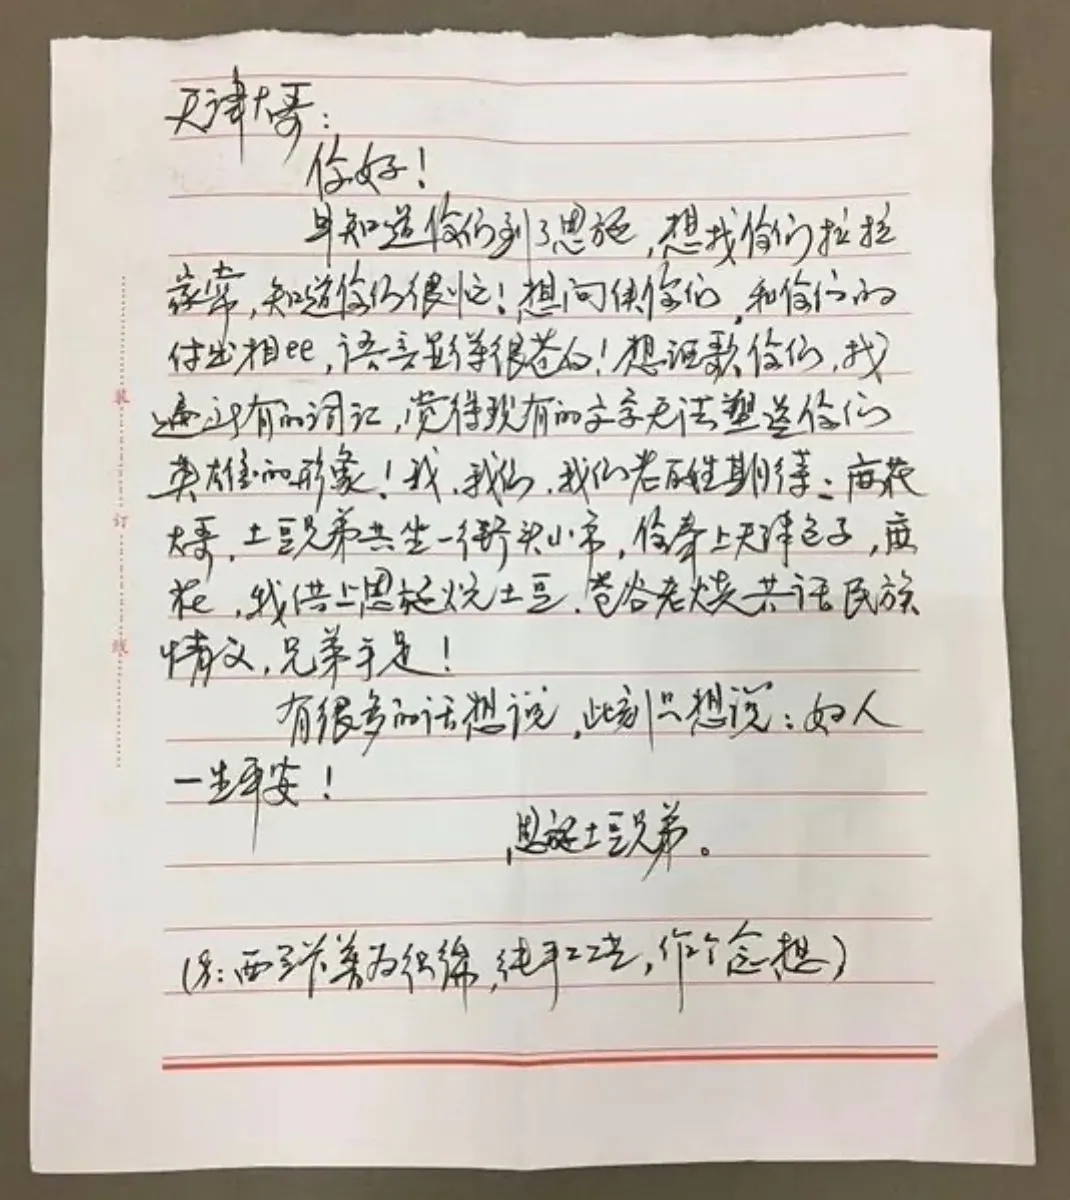 天津大哥：
你好！
早知道你们到了恩施，想找你们拉拉
家常，知道你们很忙！想问候你们，和你们的
付出相比，语言显得很苍白！想讴歌你们，找
遍所有的词汇，觉得现有的文字无法塑造你们
英雄的形象！我、我们、我们老百姓期待：麻花
大哥、土豆兄弟共坐一街头小市，你奉上天津包子，麻
花，我供上恩施炕土豆、苞谷老烧共话民族
情义，兄弟手足！
有很多的话想说，此刻只想说：好人
一生平安！
恩施土豆兄弟。
（另：西兰卡普为织锦，纯手工艺，作个念想）
装
订
线